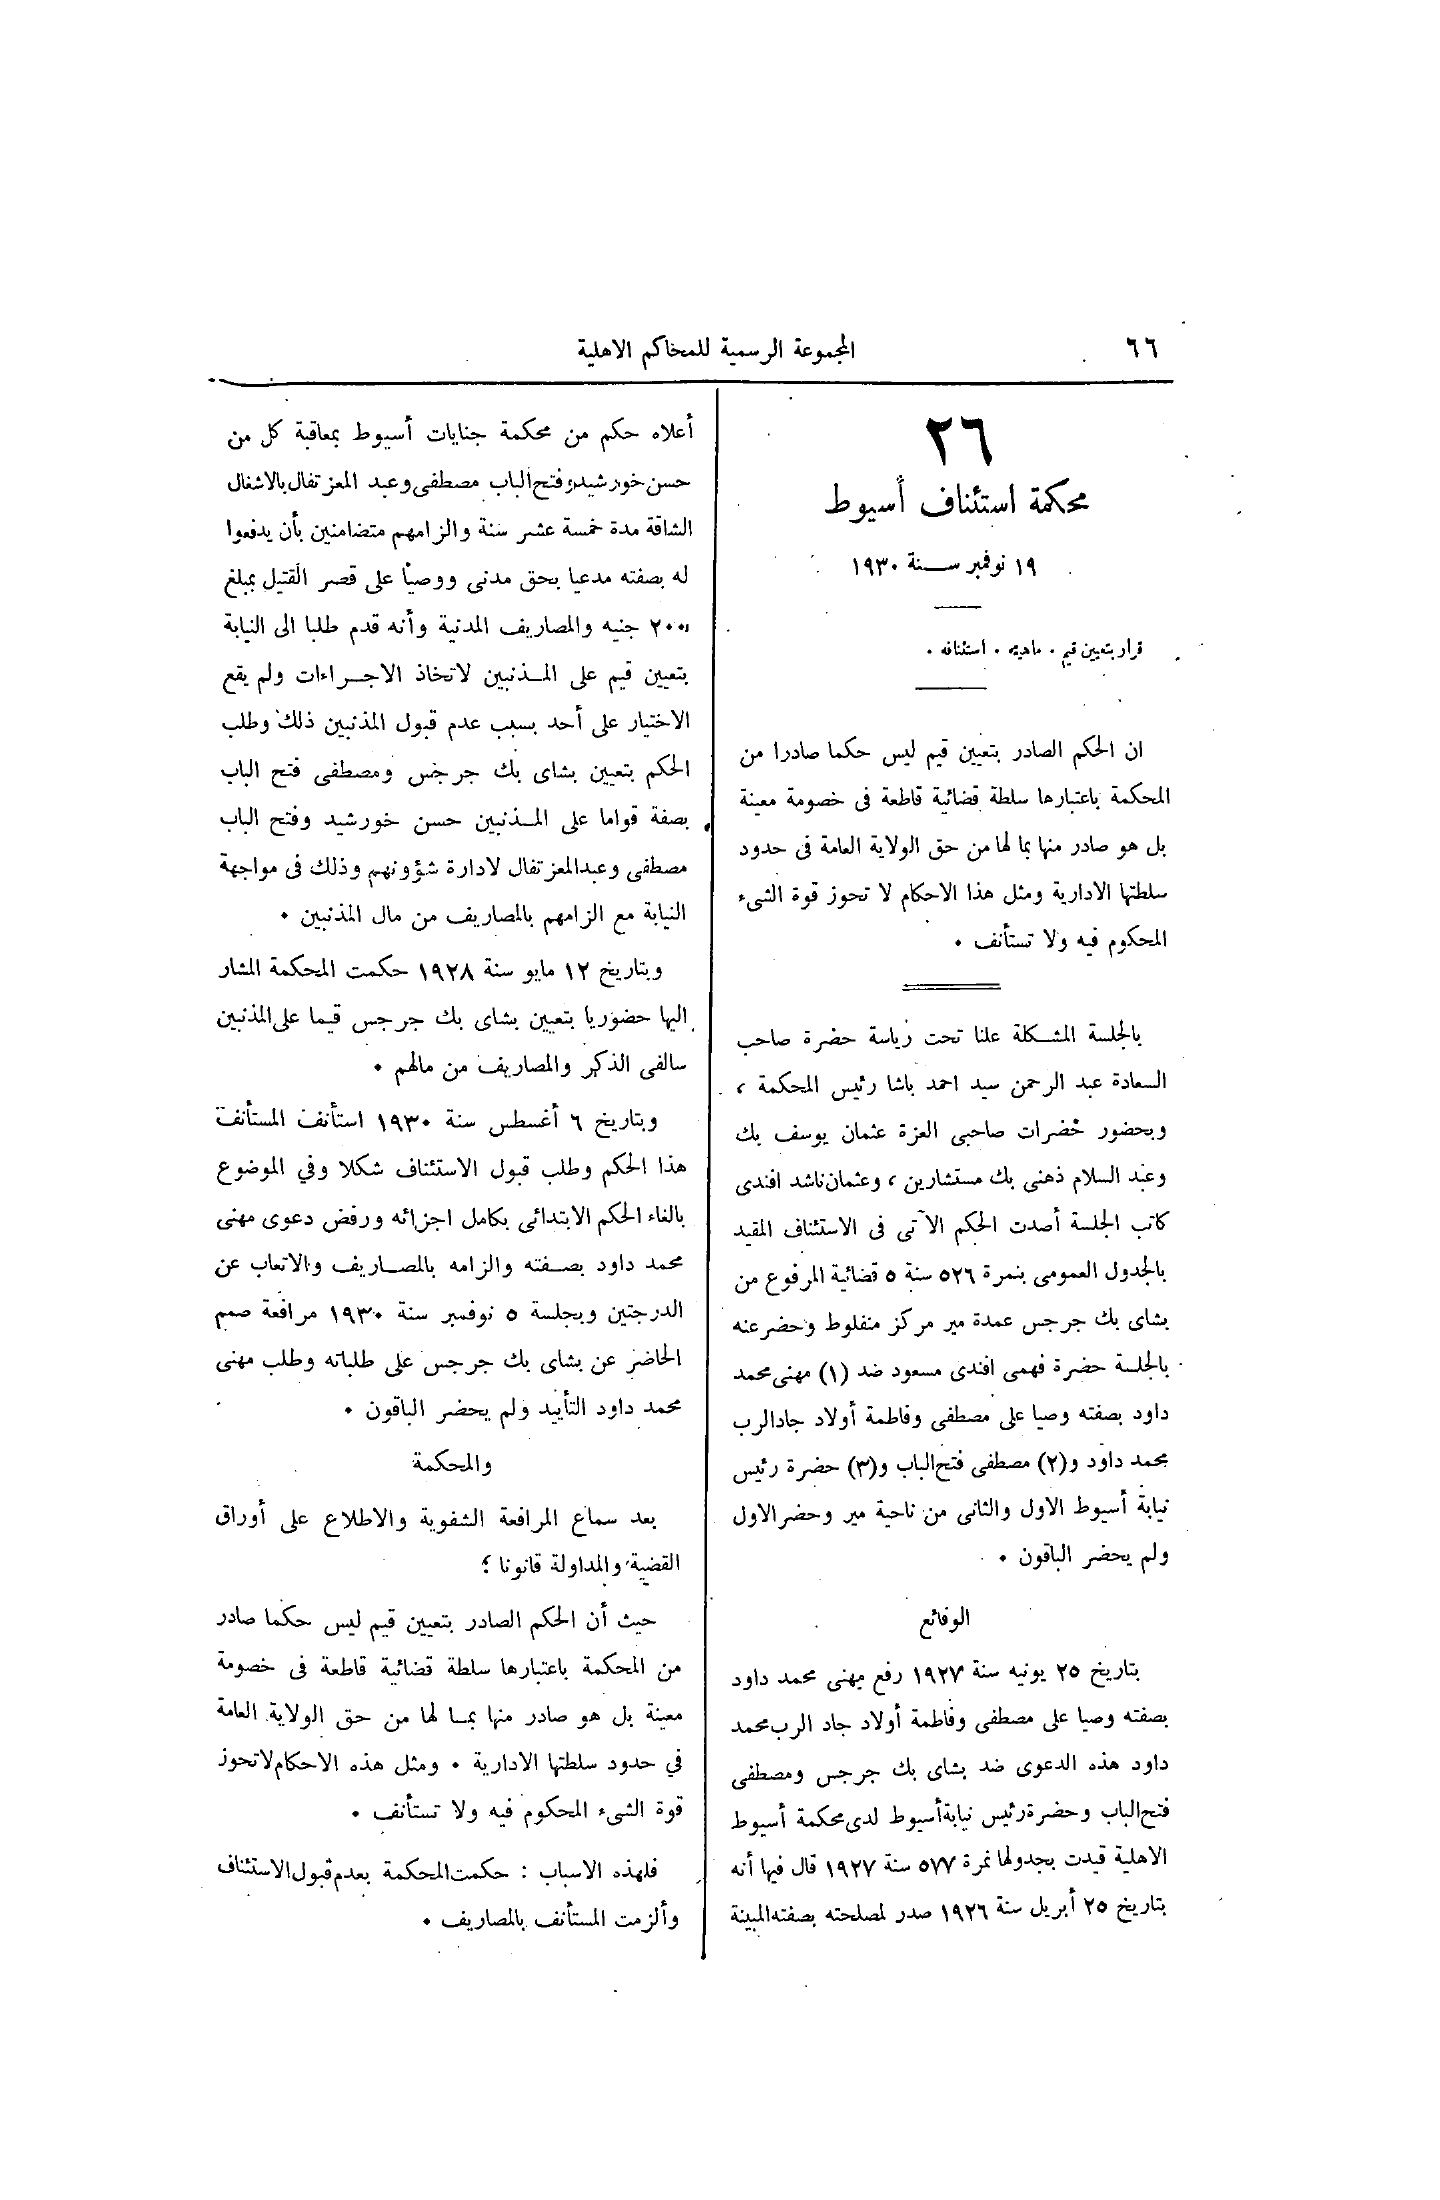 ٦٦
المجموعة الرسمية للمحاكم الاهلية
٢٦
محكمة استئناف أسيوط
١٩ نوفمبر سنة ١٩٣٠
قرار بتعيين قيم . ماهيته . استئنافه .
ان الحكم الصادر بتعيين قيم ليس حكما صادرا من
المحكمة باعتبارها سلطة قضائية قاطعة فى خصومة معينة
بل هو صادر منها بما لها من حق الولاية العامة فى حدود
سلطتها الادارية ومثل هذا الاحكام لا تحوز قوة الشىء
المحكوم فيه ولا تستأنف .
بالجلسة المشكلة علنا تحت رياسة حضرة صاحب
السعادة عبد الرحمن سيد احمد باشا رئيس المحكمة ،
وبحضور حضرات صاحبى العزة عثمان يوسف بك
وعبد السلام ذهنى بك مستشارين ، وعثمان ناشد افندى
كاتب الجلسة أصدت الحكم الآتى فى الاستئناف المقيد
بالجدول العمومى بنمرة ٥٢٦ سنة ٥ قضائية المرفوع من
بشاى بك جرجس عمدة مير مركز منفلوط وحضر عنه
بالجلسة حضرة فهمى افندى مسعود ضد (١) مهنى محمد
داود بصفته وصيا على مصطفى وفاطمة أولاد جاد الرب
محمد داود و(٢) مصطفى فتح الباب و(٣) حضرة رئيس
نيابة أسيوط الاول والثانى من ناحية مير وحضر الاول
ولم يحضر الباقون .
الوقائع
بتاريخ ٢٥ يونيه سنة ١٩٢٧ رفع مهنى محمد داود
بصفته وصيا على مصطفى وفاطمة أولاد جاد الرب محمد
داود هذه الدعوى ضد بشاى بك جرجس ومصطفى
فتح الباب وحضرة رئيس نيابة أسيوط لدى محكمة أسيوط
الاهلية قيدت بجدولها نمرة ٥٧٧ سنة ١٩٢٧ قال فيها أنه
بتاريخ ٢٥ أبريل سنة ١٩٢٦ صدر لمصلحته بصفته المبينة
أعلاه حكم من محكمة جنايات أسيوط بمعاقبة كل من
حسن خورشيد وفتح الباب مصطفى وعبد المعز تفال بالاشغال
الشاقة مدة خمسة عشر سنة والزامهم متضامنين بأن يدفعوا
له بصفته مدعيا بحق مدنى ووصيا على قصر القتيل بمبلغ
٢٠٠ جنيه والمصاريف المدنية وأنه قدم طلبا الى النيابة
بتعيين قيم على المذنبين لاتخاذ الاجراءات ولم يقع
الاختيار على أحد بسبب عدم قبول المذنبين ذلك وطلب
الحكم بتعيين بشاى بك جرجس ومصطفى فتح الباب
بصفة قواما على المذنبين حسن خورشيد وفتح الباب
مصطفى وعبدالمعز تفال لادارة شؤونهم وذلك فى مواجهة
النيابة مع الزامهم بالمصاريف من مال المذنبين .
وبتاريخ ١٢ مايو سنة ١٩٢٨ حكمت المحكمة المشار
اليها حضوريا بتعيين بشاى بك جرجس قيما على المذنبين
سالفى الذكر والمصاريف من مالهم .
وبتاريخ ٦ أغسطس سنة ١٩٣٠ استأنف المستأنف
هذا الحكم وطلب قبول الاستئناف شكلا وفي الموضوع
بالغاء الحكم الابتدائى بكامل اجزائه ورفض دعوى مهنى
محمد داود بصفته والزامه بالمصاريف والاتعاب عن
الدرجتين وبجلسة ٥ نوفمبر سنة ١٩٣٠ مرافعة صمم
الحاضر عن بشاى بك جرجس على طلباته وطلب مهنى
محمد داود التأييد ولم يحضر الباقون .
والمحكمة
بعد سماع المرافعة الشفوية والاطلاع على أوراق
القضية والمداولة قانونا ؛
حيث أن الحكم الصادر بتعيين قيم ليس حكما صادر
من المحكمة باعتبارها سلطة قضائية قاطعة فى خصومة
معينة بل هو صادر منها بما لها من حق الولاية العامة
في حدود سلطتها الادارية . ومثل هذه الاحكام لاتحوز
قوة الشىء المحكوم فيه ولا تستأنف .
فلهذه الاسباب : حكمت المحكمة بعدم قبول الاستئناف
وألزمت المستأنف بالمصاريف .